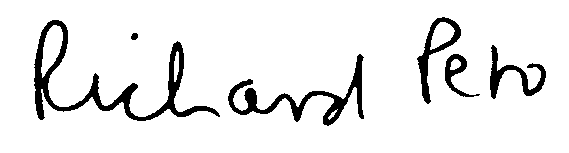 Richard Peto